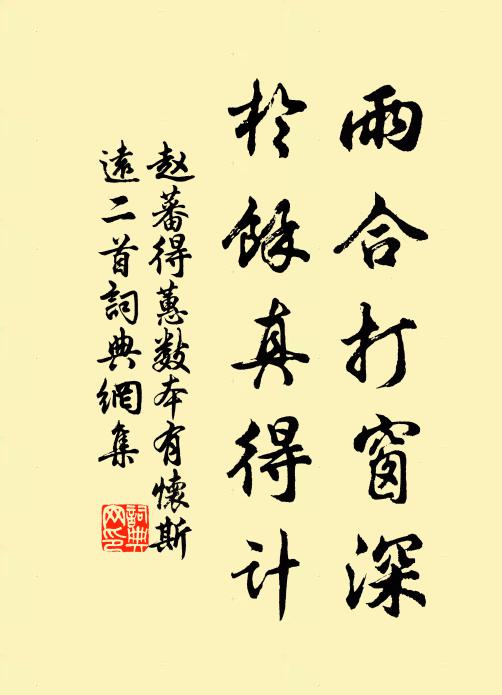 雨合打窗深
於餘真得計
赵蕃得蕙数本有懷斯
遠二首詞典網集
詞典
网印